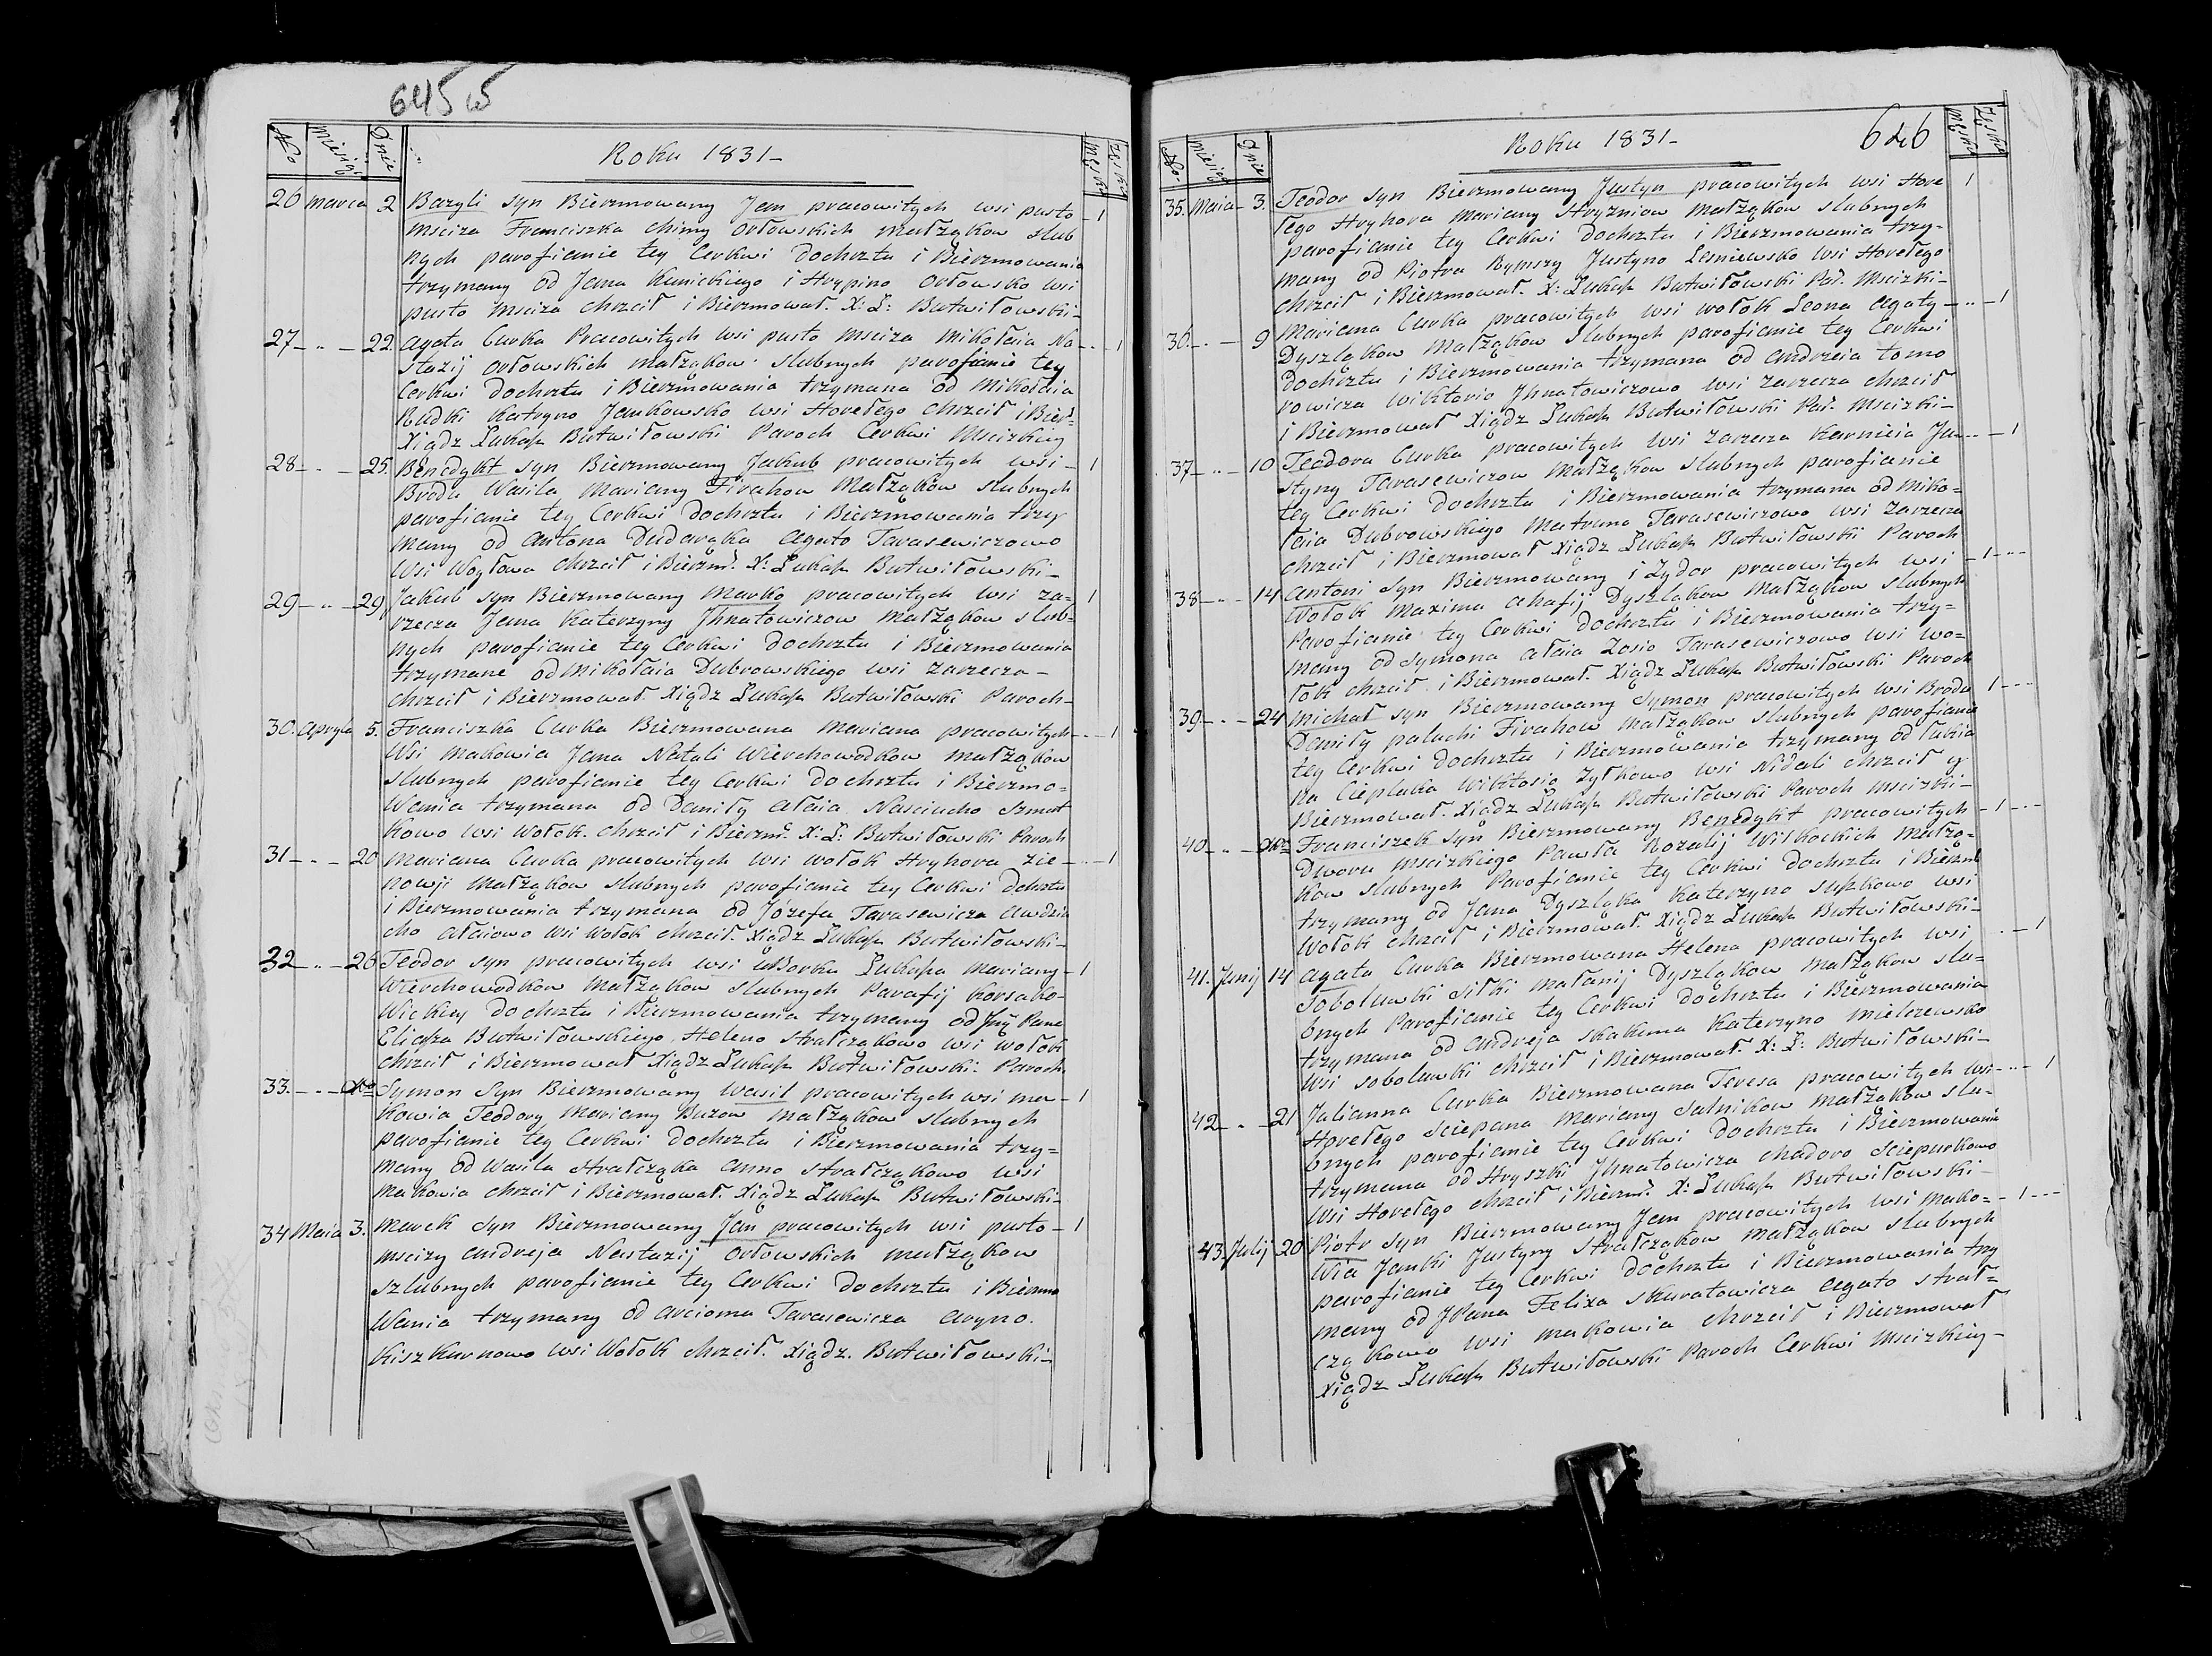 645 w
No Miesiąc Dnie Roku 1831 – Męska Żęska
26 Marca 2 Bazyli syn Bierzmowany Jan pracowitych wsi pusto – 1
Msciża Franciszka Chimy Orłowskich Małżąkow slub
nych parofianie tey Cerkwi dochrztu i Bierzmowania
trzymany od Jana Kunickiego i Hrypino Orłowsko wsi
pusto Msciża chrzcił i Bierzmował. X: Ł: Butwiłowski –
27 – „ – 22. Agata Curka Pracowitych wsi pusto Msciża Mikołaia Na – „ – 1
stazij Orłowskich małżąkow slubnych parofianie tey
Cerkwi dochrztu i Bierzmowania trzymana od Mikołaia
Rudki Katryno Jankowsko wsi Horełego chrzcił i Bier:
Xiądz Łukasz Butwiłowski Paroch Cerkwi Mscizkiey
28 – „ – 25. Benedykt syn Bierzmowany Jakub pracowitych wsi – 1
Brodu Wasila Mariany Firahow Małżąkow slubnych
parofianie tey Cerkwi dochrztu i Bierzmowania trzy
many od Antona Dudarąka Agato Tarasewiczowo
wsi Wogłowa chrzcił i Bierzm: X: Łukasz Butwiłowski –
29 – „ – 29 Jakub syn Bierzmowany Marko pracowitych wsi za – 1
rzecza Jana Katerzyny Jhnatowiczow Małżąkow slub=
nych parofianie tey Cerkwi dochrztu i Bierzmowania
trzymane od Mikołaia Dubrowskiego wsi zarzecza –
chrzcił i Bierzmował. Xiądz Łukasz Butwiłowski Paroch –
30. Apryla 5. Franciszka Curka Bierzmowana Mariana pracowitych – „ – 1
Wsi Makowia Jana Natali Wierchowodkow małżąkow
slubnych parofianie tey Cerkwi dochrztu i Bierzmo=
wania trzymana od Daniły Ałaia Nasciucho Szmat
kowo wsi Wołok. chrzcił i Bierzm: X: Ł: Butwiłowski Paroch
31 – „ – 20 Mariana Curka pracowitych wsi wołok Hryhora zie – „ – 1
nowji małżąkow slubnych parofianie tey Cerkwi dochrztu
i Bierzmowania trzymana od Józefa Tarasewicza Awdzia
cho Ałaiowo wsi Wołok chrzcił. Xiądz Łukasz Butwiłowski –
32 – „ – 26 Teodor syn pracowitych wsi uBorka Łukasza Mariany – 1
Wierchowodkow małżąkow slubnych Parafij Korsako=
wickiey dochrztu i Bierzmowania trzymany od Jmć Pana
Eliasza Butwiłowskiego Heleno Strałcząkowo wsi wołok
chrzcił i Bierzmował Xiądz Łukasz Butwiłowski: Paroch
33. – „ – Symon Syn Bierzmowany Wasil pracowitych wsi ma – 1
kowia Teodory Mariany Buzow małżąkow slubnych
parofianie tey Cerkwi dochrztu i Bierzmowania trzy=
many od Wasila Strałcząka Anno Strałcząkowo wsi
Makowia chrzcił i Bierzmował. Xiądz Łukasz Butwiłowski –
34 Maia 3. Marek syn Bierzmowany Jan pracowitych wsi pusto – 1
msciży Andreja Nastazij Orłowskich małżąkow
szlubnych parofianie tey Cerkwi dochrztu i Bierzmo
wania trzymany od Arcioma Tarasewicza Aryno.
Kiszkurnowo wsi Wołok chrzcił. Xiądz. Butwiłowski –
646
No: Miesiąc Dnie Roku 1831 – Męska Żęska
35. Maia – 3. Teodor syn Bierzmowany Justyn pracowitych wsi Hore 1
łego Hryhora Mariany Hryzniow małżąkow slubnych
parofianie tey Cerkwi dochrztu i Bierzmowania trzy=
many od Piotra Rymszy Justyno Lesniewsko wsi Horełego
chrzcił i Bierzmował. X: Łukasz Butwiłowski Par. Mscizki –
36. – „ – 9 Mariana Curka pracowitych wsi wołok Leona Agaty – „ – 1
Dyszląkow Małżąkow slubnych parofianie tey Cerkwi
dochrztu i Bierzmowania trzymana od Andrzeia tomo
rowicza Wiktorio Jhnatowiczowo wsi zarzecza chrzcił
i Bierzmował Xiądz Łukasz Butwiłowski Par. Mscizki –
37 – „ – 10 Teodora Curka pracowitych wsi zarzecza Karnieia Ju – „ – 1
styny Tarasewiczow Małżąkow slubnych parofianie
tey Cerkwi dochrztu i Bierzmowania trzymana od Miko=
łaia Dubrowskiego Matruno Tarasewiczowo wsi zarzecza
chrzcił i Bierzmował Xiądz Łukasz Butwiłowski Paroch
38 – „ – 14 Antoni syn Bierzmowany i Zydor pracowitych wsi – 1 – – –
Wołok Maxima Ahafij Dyszląkow Małżąkow slubnych
Parofianie tey Cerkwi dochrztu i Bierzmowania trzy=
many od Symona Ałaia Zosio Tarasewiczowo wsi wo=
łok chrzcił i Bierzmował. Xiądz Łukasz Butwiłowski Paroch
39 – „ – 24 Michał syn Bierzmowany Symon pracowitych wsi Brodu 1 – – –
Daniły paluchi Firahow małżąkow slubnych parofiane
tey Cerkwi dochrztu i Bierzmowania trzymany od Łukia
na Ciepluka Wiktosio Zyłkowo wsi Nidali chrzcił y
Bierzmował. Xiądz Łukasz Butwiłowski Paroch Mscizki –
40 – „ – Franciszek syn Bierzmowany Benedykt pracowitych – 1 – – –
Dworu Mscizkiego Pawła Rozalij Wilkockich Małżo=
kow slubnych Parofianie tey Cerkwi dochrztu i Bierzm
trzymany od Jana Dyszląka Katerzyno Suszkowo wsi
Wołok chrzcił i Bierzmował. Xiądz Łukasz Butwiłowski –
41. Junij 14 Agata Curka Bierzmowana Helena pracowitych wsi „ – 1
Soboluwki Siłki Małanij Dyszląkow Małżąkow slu=
bnych Parofianie tey Cerkwi dochrztu i Bierzmowania
trzymana od Andreja Skakuna Katerzyno Mielezewsko
wsi Soboluwki chrzcił i Bierzmował. X: Ł: Butwiłowski –
42 – „ – 21 Julianna Curka Bierzmowana Teresa pracowitych wsi – „ – 1
Horełego Sciepana Mariany Sutnikow małżąkow slu=
bnych parofianie tey Cerkwi dochrztu i Bierzmowania
trzymana od Hryszki Jhnatowicza Chadoro Sciepurkowo
wsi Horełego chrzcił i Bierzm: X: Łukasz Butwiłowski
43. Julij 20 Piotr syn Bierzmowany Jan pracowitych wsi Mako= – 1 – – –
wia Janki Justyny Strałcząkow małżąkow slubnych
parofianie tey Cerkwi dochrztu i Bierzmowania trzy
many od JPana Felixa Skuratowicza Agato Strał=
czą kowo wsi Makowia chrzcił i Bierzmował
Xiądz Łukasz Butwiłowski Paroch Cerkwi Mscizkiey –